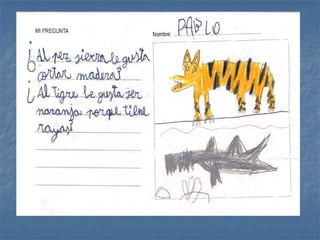 MI PREGUNTA
Nombre: PABLO
¿Al pez sierra le gusta
cortar madera?
¿Al tigre le gusta ser
naranja porque tiene
rayas?